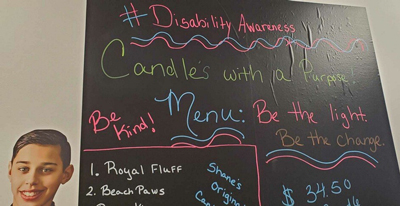 # Disability Awareness
Candles with a Purpose!
Be Kind!
Menu:
Be the light.
Be the change.
1. Royal Fluff
2. Beach Paws
Shane's
Original
$ 34.50